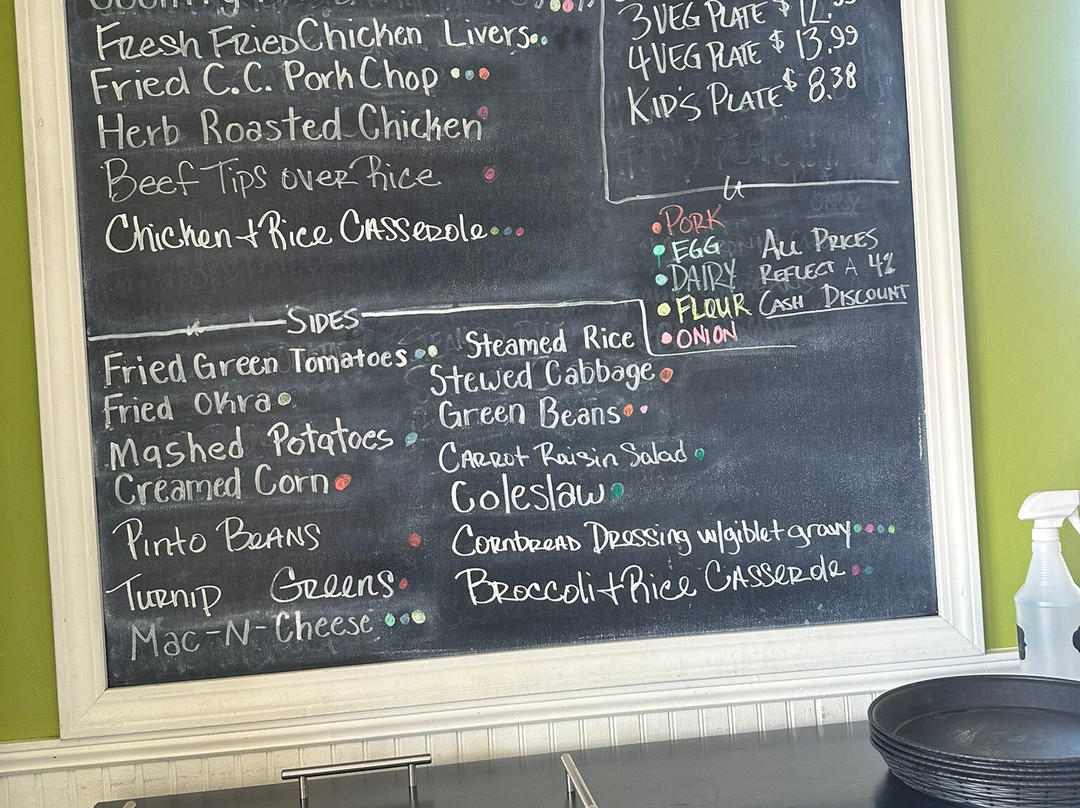 Fresh Fried Chicken Livers
Fried C.C. Pork Chop
Herb Roasted Chicken
Beef Tips over Rice
Chicken + Rice Casserole
3 VEG PLATE $ 12.
4 VEG PLATE $ 13.99
KID'S PLATE $ 8.38
PORK
EGG
DAIRY
FLOUR
ONION
ALL PRICES
REFLECT A 4%
CASH DISCOUNT
SIDES
Fried Green Tomatoes
Fried Okra
Mashed Potatoes
Creamed Corn
Pinto Beans
Turnip Greens
Mac-N-Cheese
Steamed Rice
Stewed Cabbage
Green Beans
Carrot Raisin Salad
Coleslaw
Cornbread Dressing w/giblet gravy
Broccoli + Rice Casserole